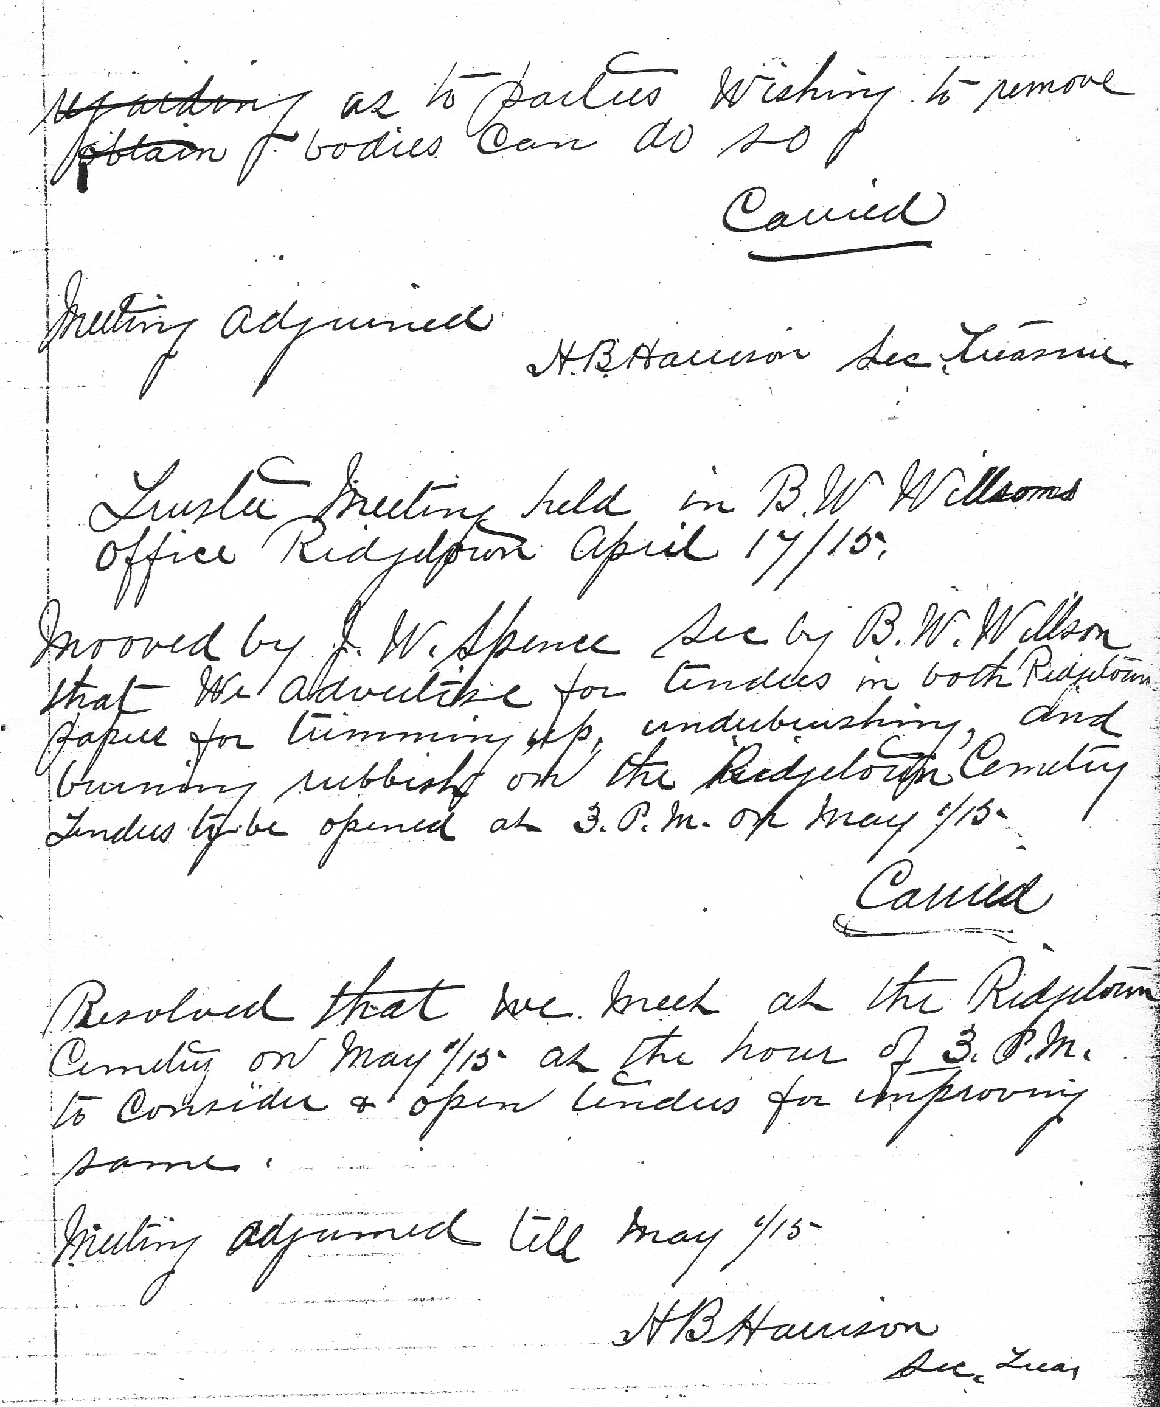 regarding as to parties Wishing to remove
obtain bodies can do so
Carried
Meeting adjourned
H.B. Harrison Sec. Treasure.
Trustee Meeting held in B.W Willsons
office Ridgetown April 17/15.
Mooved by J. W. Spence Sec by B.W. Willson
that We advertise for tenders in both Ridgetown
papers for trimming up, underbrushing, and
burning rubbish on the Ridgetown Cemetry
Tenders to be opened at 3. P.M. on May /15
Carried
Resolved that we meet at the Ridgetown
Cemetry on May /15 at the hour of 3. P.M.
to Consider & open tenders for improving
same.
Meeting adjurned till May /15
H B Harrison
Sec. Treas,